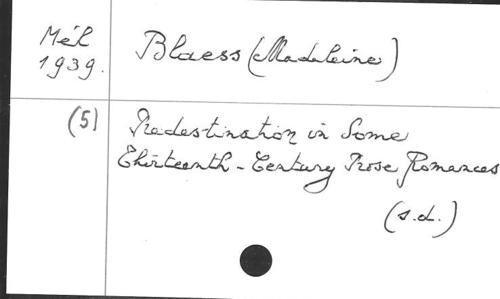 Mél
1939.
Blaess (Madeleine)
(5)
Predestination in Some
Thirteenth-Century Prose Romances
(s.d.)